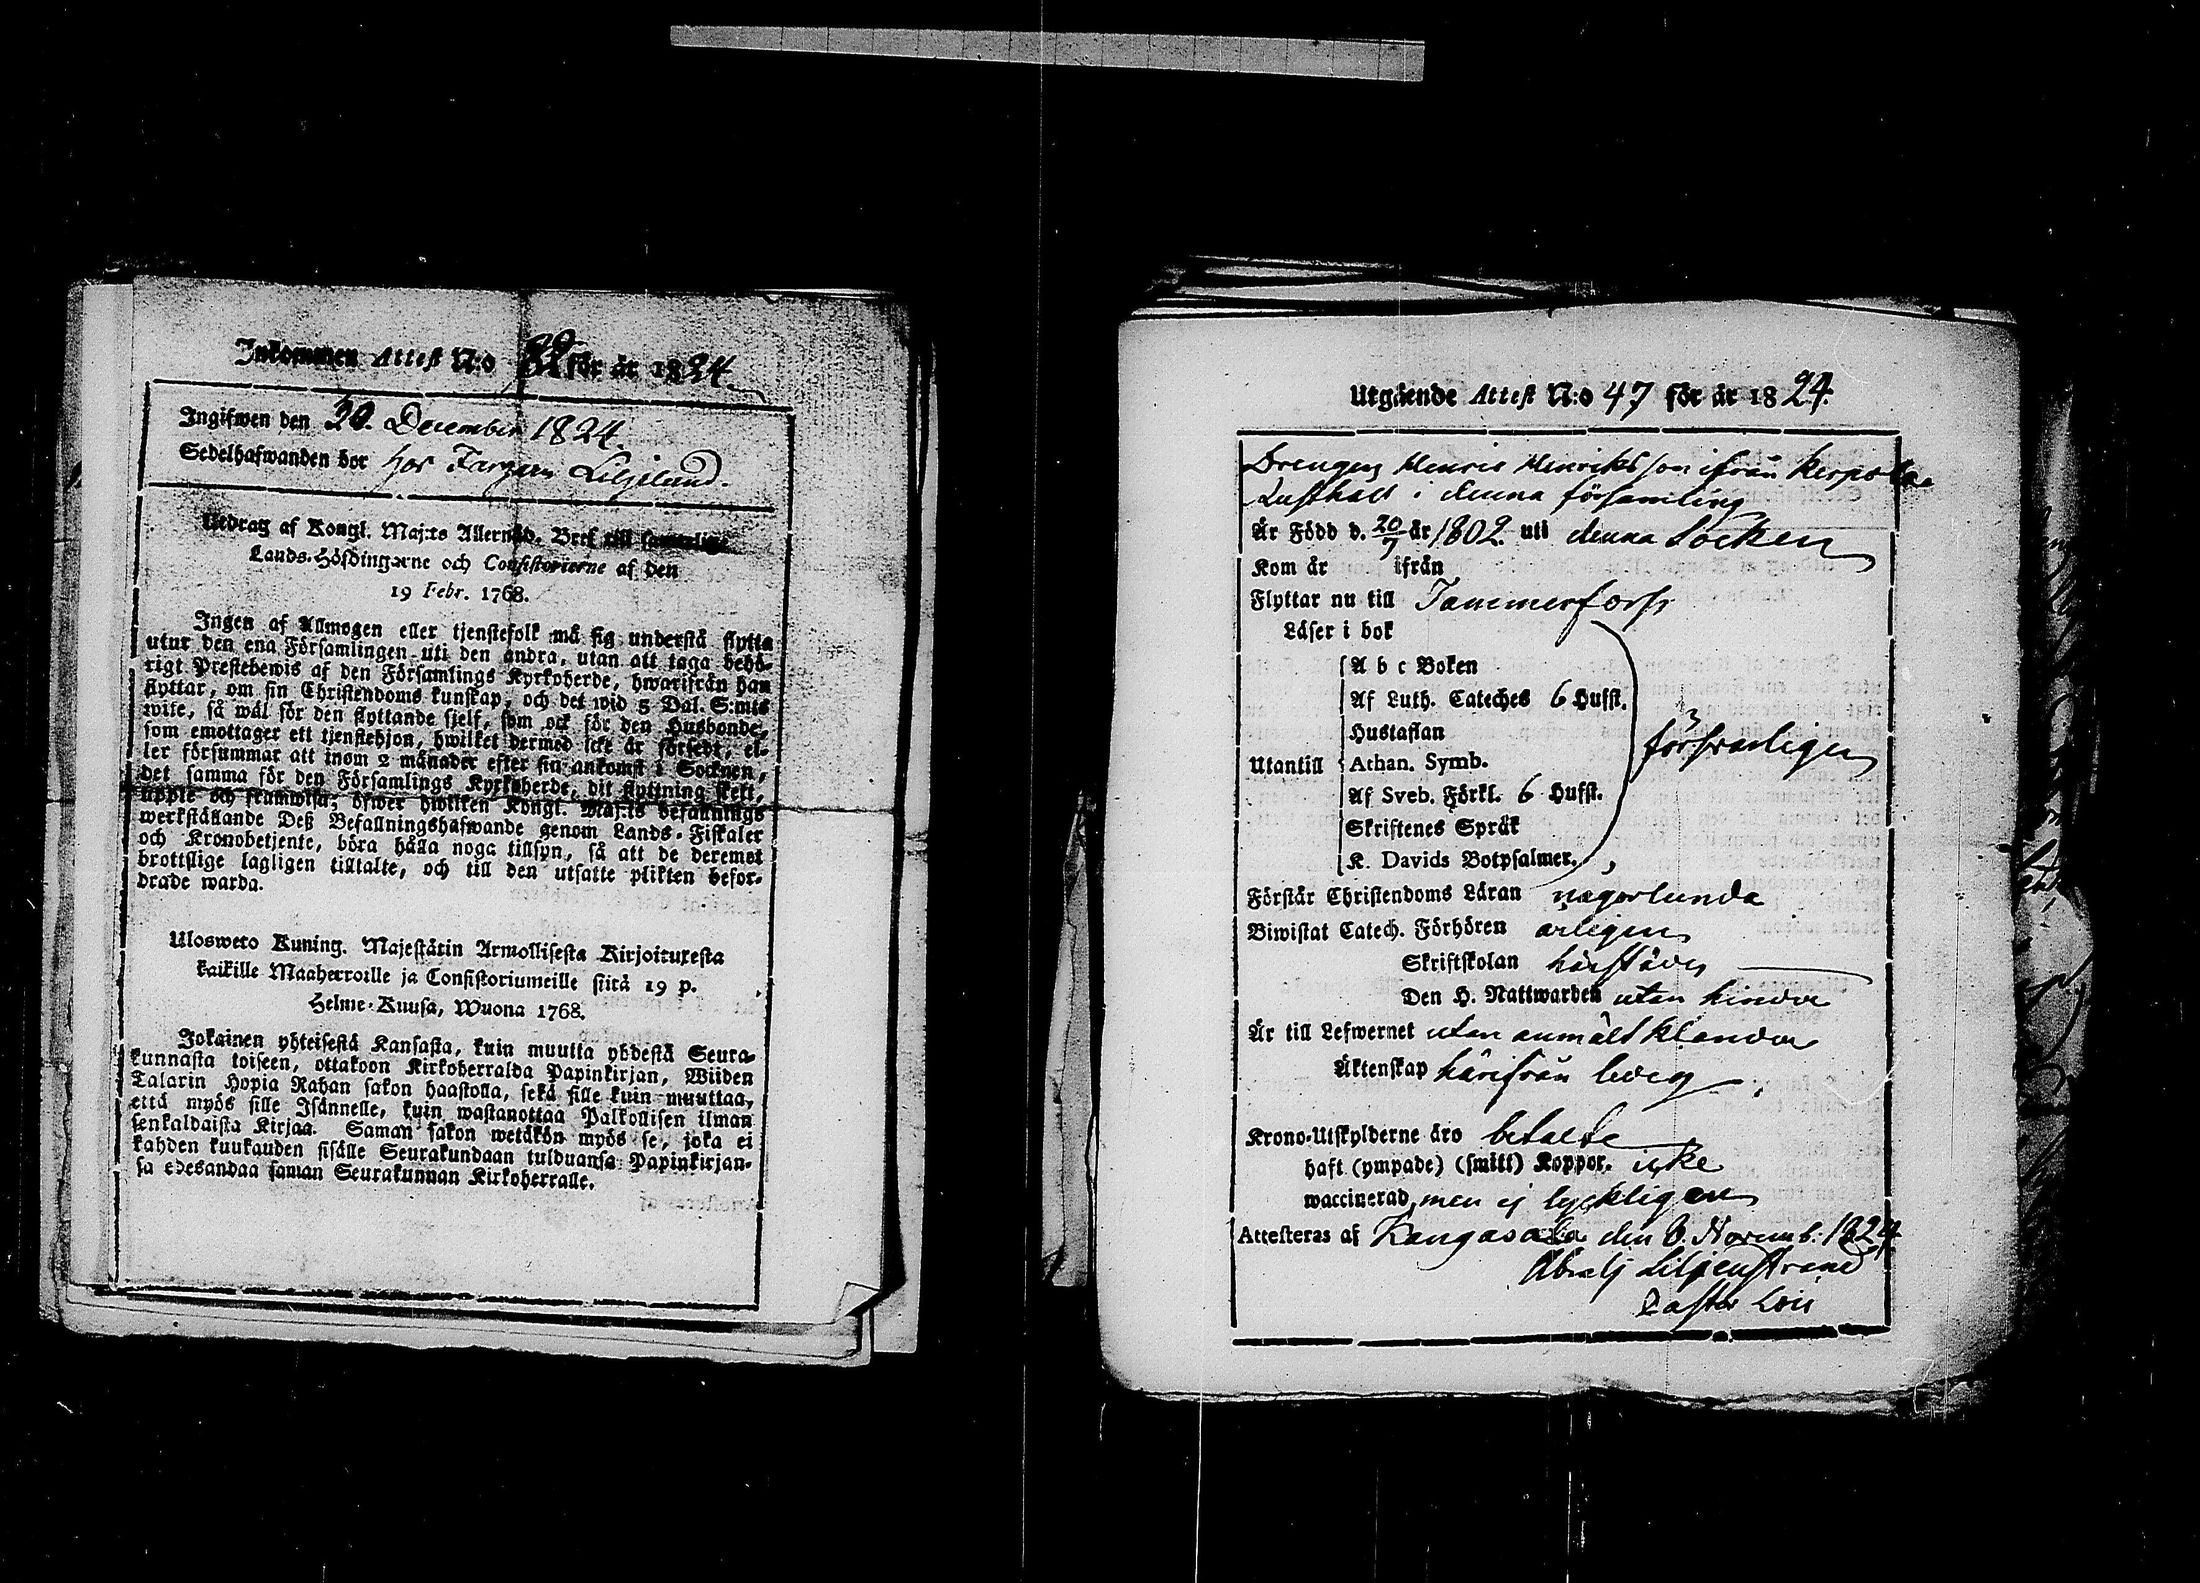 Inkommen Attest N:o 30 för år 1824.
Ingifwen den 30. December 1824.
Sedelhafwanden bor hos Fargaren Liljelund.
Utdrag af Kongl. Maj:ts Allernåd. Bref till samtelige
Lands-Höfdingarne och Consistorierne af den
19 Febr. 1768.
Ingen af Allmogen eller tjenstefolk må sig understå flytta
utur den ena Församlingen uti den andra, utan att taga behö-
rigt Prestebewis af den Församlings Kyrkoherde, hwarifrån han
flyttar, om sin Christendoms kunskap, och det wid 5 Dal. S:mts
wite, så wäl för den flyttande sjelf, som ock för den Husbonde,
som emottager ett tjenstehjon, hwilket dermed icke är försedt, el-
ler försummar att inom 2 månader efter sin ankomst i Socknen,
det samma för den Församlings Kyrkoherde, dit flyttning skett,
uppte och framwisa; öfwer hwilken Kongl. Maj:ts befallnings
werkställande Deß Befallningshafwande genom Lands-Fiskaler
och Kronobetjente, böra hålla noga tillsyn, så att de deremot
brottslige lagligen tilltalte, och till den utsatte plikten befor-
drade warda.
Ulosweto Kuning. Majestätin Armollisesta Kirjoituxesta
kaikille Maaherroille ja Consistoriumeille siitä 19 p.
Helme-Kuusa, Wuona 1768.
Jokainen yhteisestä Kansasta, kuin muutta yhdestä Seura-
kunnasta toiseen, ottakoon Kirkoherralda Papinkirjan, Wiiden
Talarin Hopia Rahan sakon haastolla, sekä sille kuin muuttaa,
että myös sille Isännelle, kuin wastanottaa Palkollisen ilman
senkaldaista Kirjaa. Saman sakon wetäkön myös se, joka ei
kahden kuukauden sisälle Seurakundaan tulduansa Papinkirjan-
sa edesandaa saman Seurakunnan Kirkoherralle.
Utgående Attest N:o 47 för år 1824.
Drengen Henric Henriksson ifrån Kerpola
Lusthall i denna församling
Är Född d. 20/7 år 1802 uti denna Socken
Kom år ifrån
Flyttar nu till Tammerfors
Läser i bok
A b c Boken
Af Luth. Cateches 6 Hufst.
Hustaflan
Utantill Athan. Symb.
Af Sveb. Förkl. 6 Hufst.
Skriftenes Språk
K. Davids Botpsalmer.
försvarligen
Förstår Christendoms Läran någorlunda
Biwistat Catech. Förhören årligen
Skriftskolan härstädes
Den H. Nattwarden utan hinder
Är till Lefwernet utan anmält klander
Äktenskap härifrån ledig
Krono-Utskylderne äro betalte
haft (ympade) (smitt) Koppor. icke
waccinerad, men ej lyckligen
Attesteras af Kangasala den 6. Novemb: 1824.
Abrah Liljenstrand
Pastor Loci